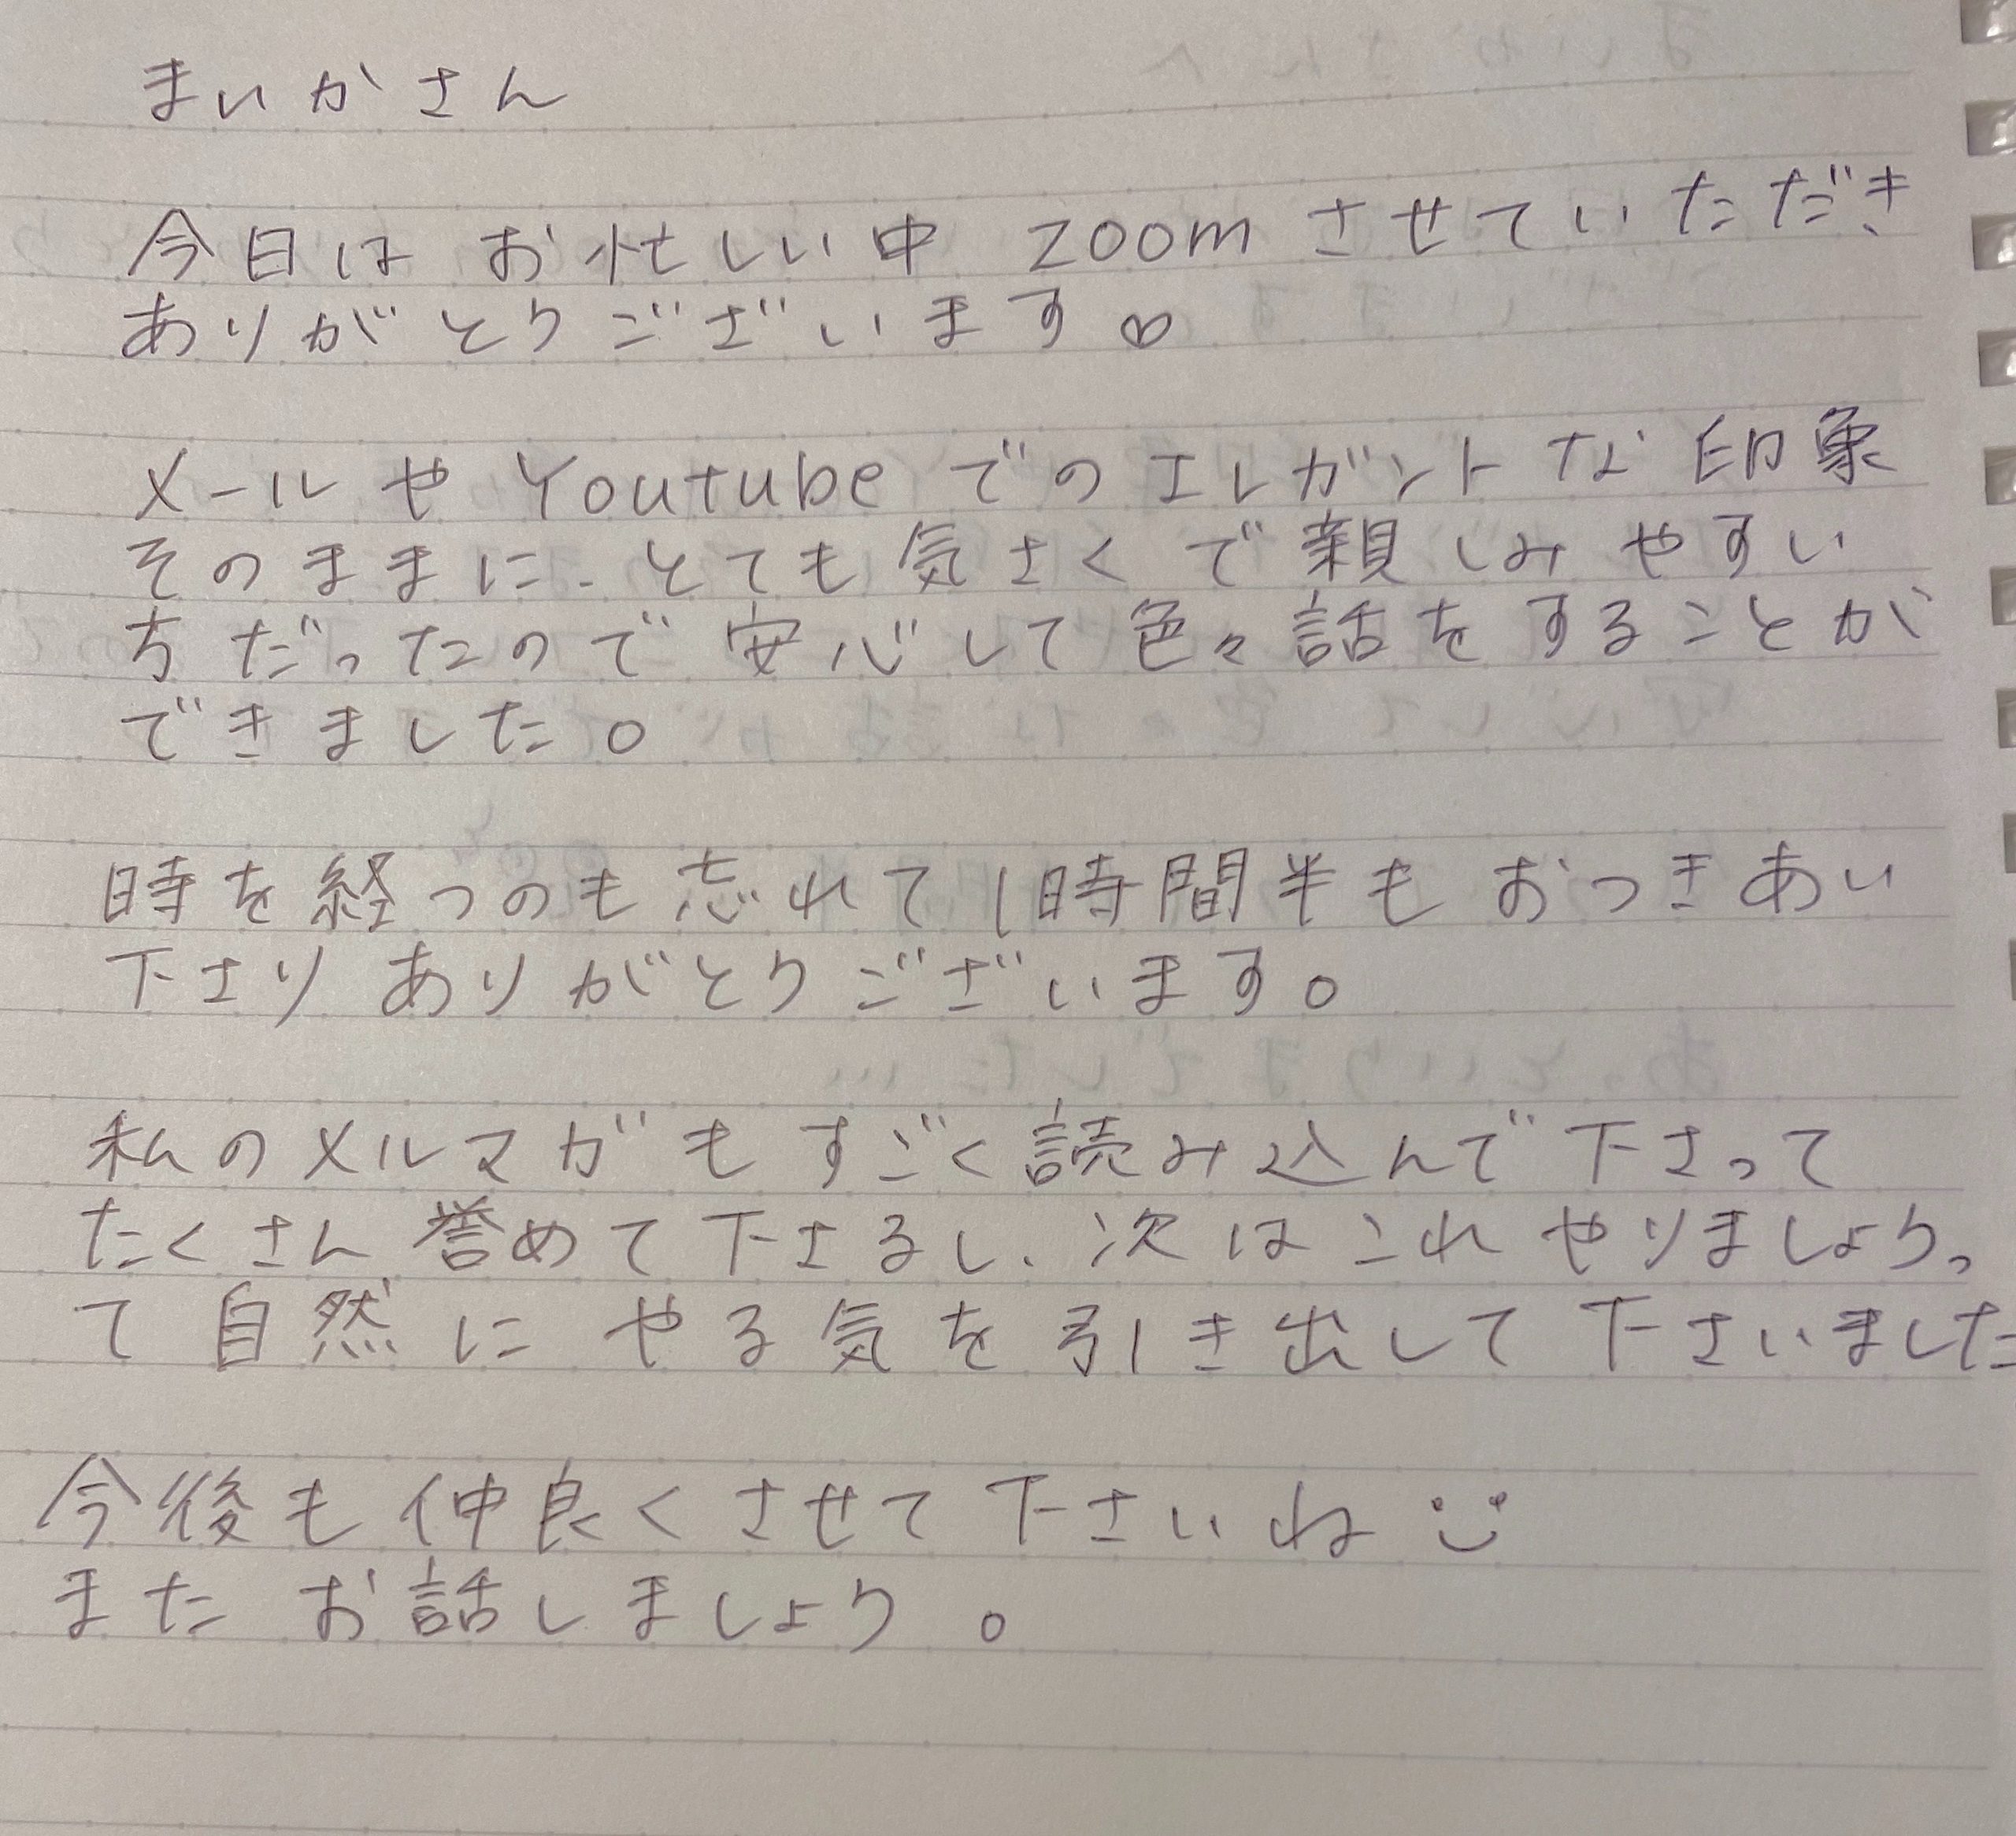 まいかさん
今日は お忙しい中 zoom させていただき
ありがとうございます♡
メールや Youtube でのエレガントな印象
そのままに、とても気さくで親しみやすい
方だったので安心して色々話をすることが
できました。
時を経つのも忘れて1時間半もおつきあい
下さり ありがとうございます。
私のメルマガもすごく読み込んで下さって
たくさん誉めて下さるし、次はこれやりましょうっ
て自然にやる気を引き出して下さいました
今後も仲良くさせて下さいね
また お話しましょう。